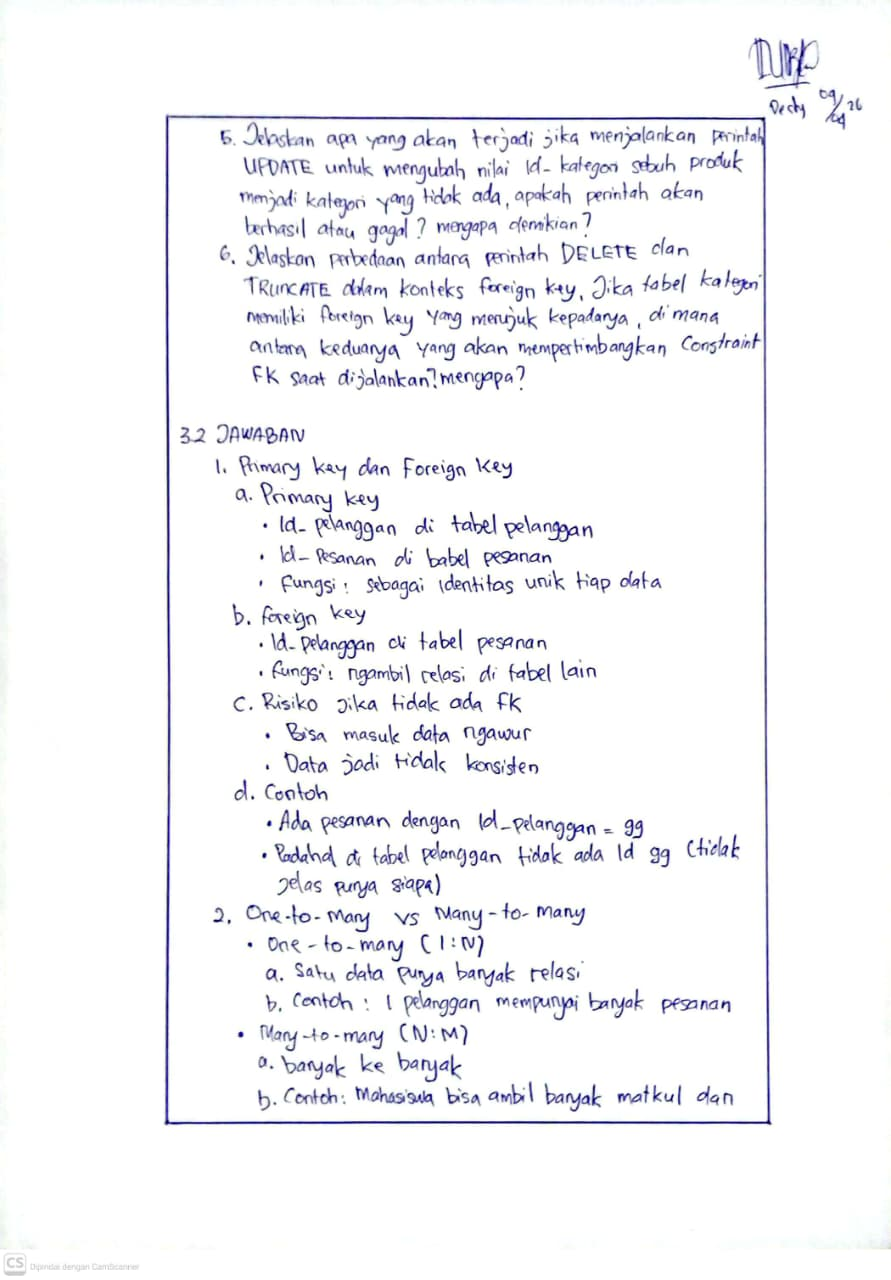 Desty 09/04 26
5. Jelaskan apa yang akan terjadi jika menjalankan perintah
UPDATE untuk mengubah nilai Id-kategori sebuh produk
menjadi kategori yang tidak ada, apakah perintah akan
berhasil atau gagal? mengapa demikian?
6. Jelaskan perbedaan antara perintah DELETE dan
TRUNCATE dalam konteks foreign key, Jika tabel kategori
memiliki foreign key yang merujuk kepadanya, di mana
antara keduanya yang akan mempertimbangkan Constraint
FK saat dijalankan? mengapa?
3.2 JAWABAN
1. Primary key dan Foreign Key
a. Primary key
• Id-pelanggan di tabel pelanggan
• Id-Pesanan di babel pesanan
• Fungsi: sebagai identitas unik tiap data
b. foreign key
• Id-pelanggan di tabel pesanan
• fungsi: ngambil relasi di tabel lain
C. Risiko jika tidak ada fk
• Bisa masuk data ngawur
• Data jadi tidak konsisten
d. Contoh
• Ada pesanan dengan Id-pelanggan = 99
• Padahal di tabel pelanggan tidak ada Id 99 (tidak
jelas punya siapa)
2. One-to-many vs Many-to-many
• One-to-many (1:N)
a. Satu data punya banyak relasi
b. Contoh: 1 pelanggan mempunyai banyak pesanan
• Many-to-many (N:M)
a. banyak ke banyak
b. Contoh: Mahasiswa bisa ambil banyak matkul dan
CS Dipindai dengan CamScanner